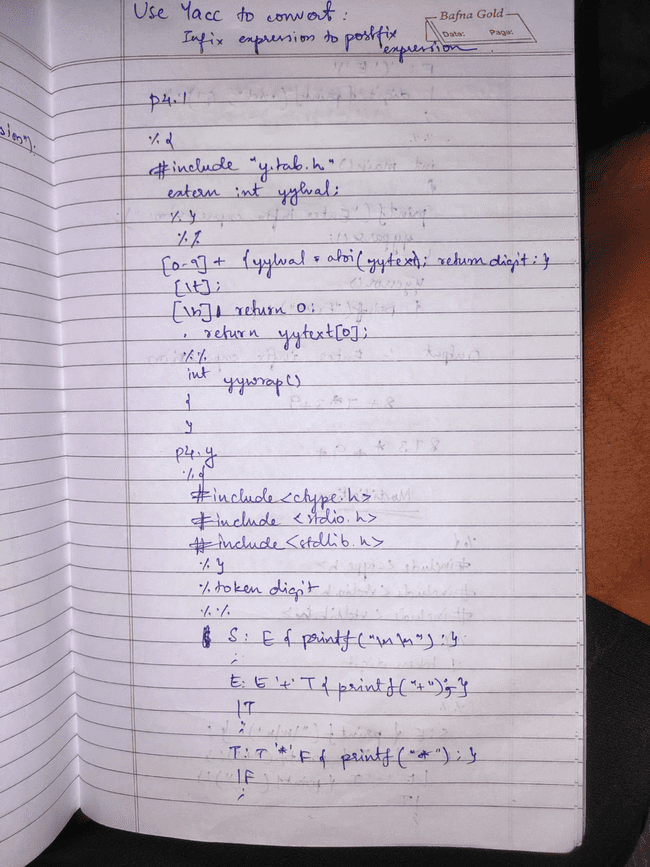 Use Yacc to convert:
Infix expression to postfix
expression
Bafna Gold
Date: Page:
sion").
P4.l
%{
#include "y.tab.h"
extern int yylval;
%}
%%
[0-9]+ {yylval = atoi(yytext); return digit;}
[\t];
[\n] return 0;
. return yytext[0];
%%
int yywrap()
{
}
P4.y
%{
#include <ctype.h>
#include <stdio.h>
#include <stdlib.h>
%}
%token digit
%%
S: E { printf("\n\n"); }
;
E: E '+' T { printf("+"); }
|T
;
T: T '*' F { printf("*"); }
|F
;